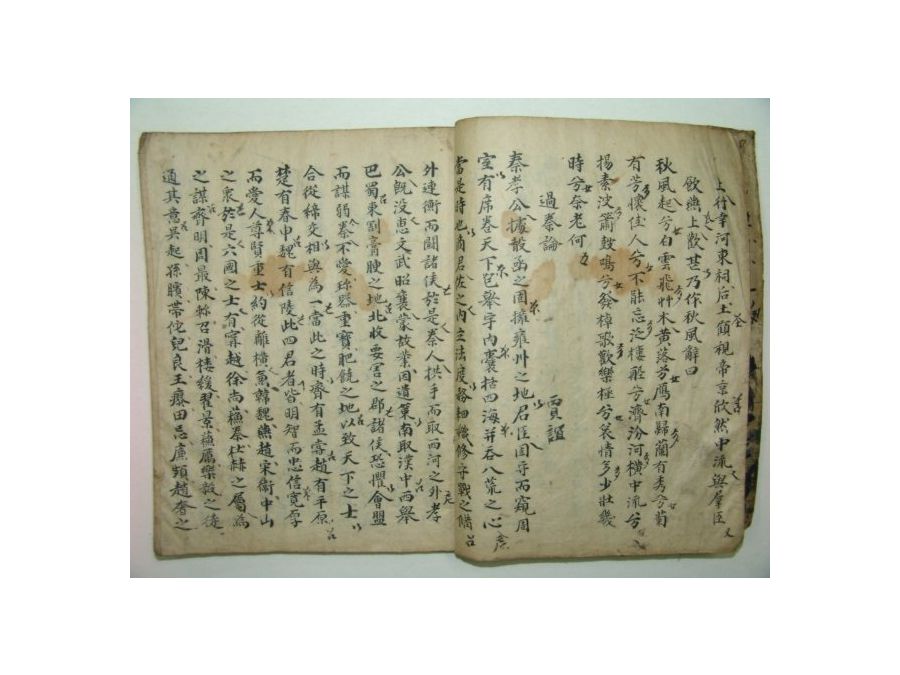 上行幸河東祠后土顧視帝京欣然中流與羣臣
飮燕上歡甚乃作秋風辭曰
秋風起兮白雲飛艸木黃落兮鴈南歸蘭有秀兮菊
有芳懷佳人兮不能忘泛樓舡兮濟汾河橫中流兮
揚素波簫鼓鳴兮發棹歌歡樂極兮哀情多少壯幾
時兮奈老何
過秦論 賈誼
秦孝公據殽函之固擁雍州之地君臣固守而窺周
室有席卷天下包擧宇內囊括四海幷吞八荒之心
當是時也商君佐之內立法度務耕織修守戰之備
外連衡而鬪諸侯於是秦人拱手而取西河之外孝
公旣没惠文武昭襄蒙故業因遺策南取漢中西擧
巴蜀東割膏腴之地北收要害之郡諸侯恐懼會盟
而謀弱秦不愛珎器重寶肥饒之地以致天下之士
合從締交相與爲一當此之時齊有孟嘗趙有平原
楚有春申魏有信陵此四君者皆明智而忠信寬厚
而愛人尊賢重士約從離橫兼韓魏燕趙宋衛中山
之衆於是六國之士有寗越徐尙蘇秦杜赫之屬爲
之謀齊明周最陳軫召滑樓緩翟景蘇厲樂毅之徒
通其意吳起孫臏帶佗兒良王廖田忌廉頗趙奢之